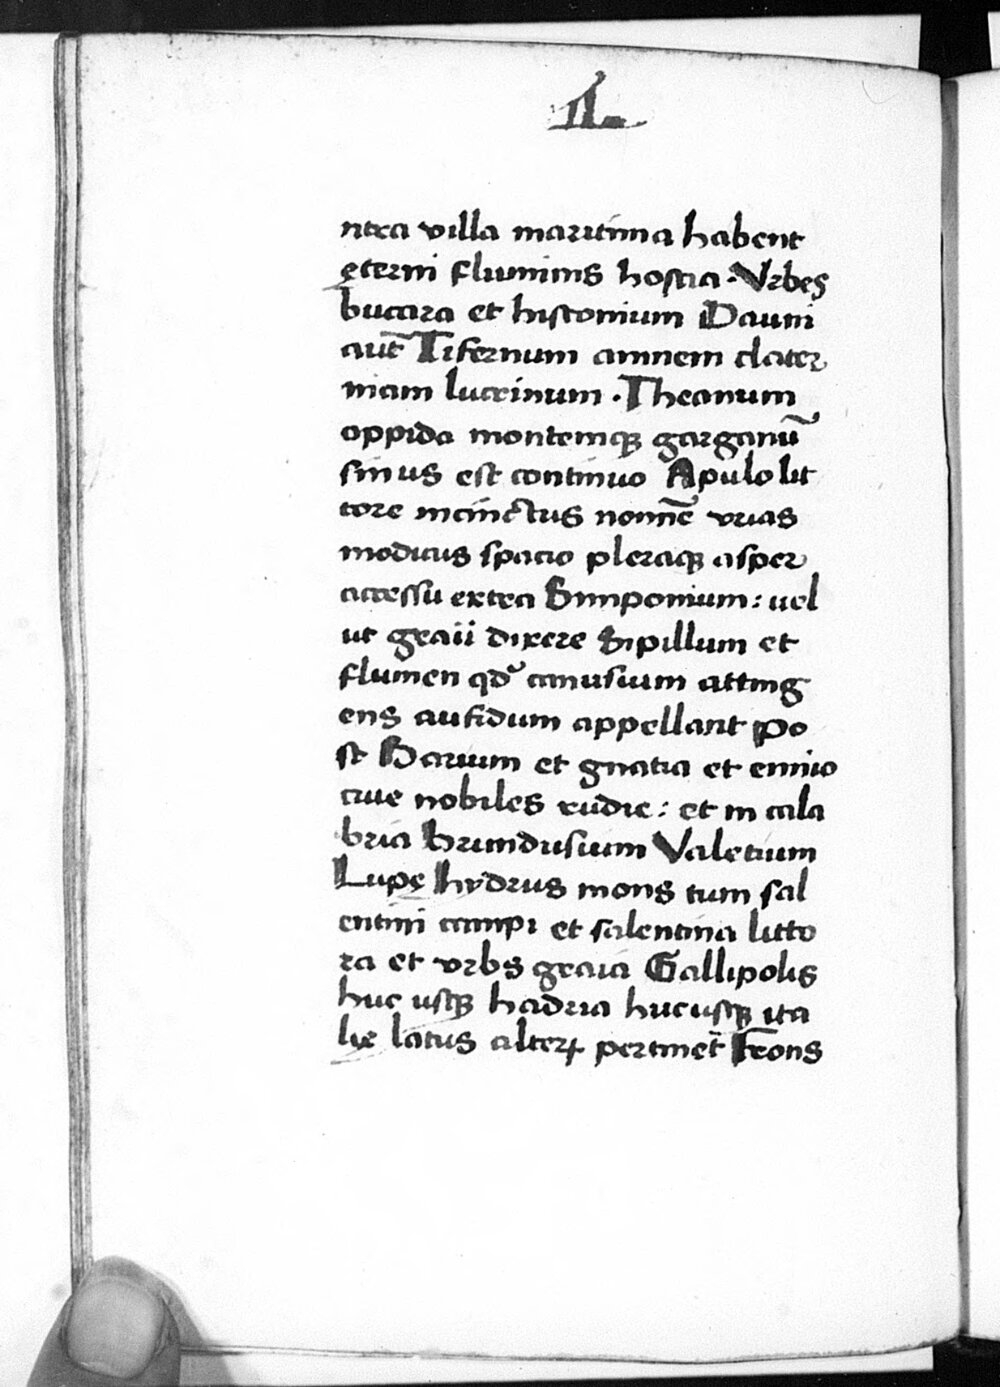 IL
ntra villa maritima habent
ęterni fluminis hostia · Vrbes
buccara et histonium Dauni
aut̃ Tifernum amnem clater
niam lucrinum · Theanum
oppida montemqꝫ garganũ
sinus est continuo Apulo lit
tore incinctus nomĩe vrias
modicus spacio pleraqꝫ asper
accessu extra Sinponium : uel
ut graii dixere Sipillum et
flumen qđ canusium atting
ens aufidum appellant Po
st Barium et gnatia et ennio
ciue nobiles rudie : et in cala
bria brundusium Valetium
Lupę hydrus mons tum sal
entini campi et salentina litto
ra et vrbs graia Gallipolis
huc usqꝫ hadria huc usqꝫ ita
lię latus alterꝝ pertinet̃ Frons